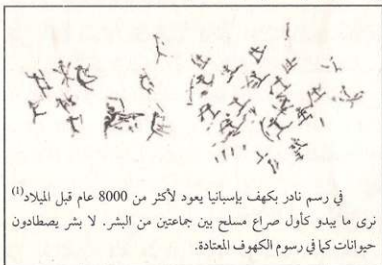 في رسم نادر بكهف بإسبانيا يعود لأكثر من 8000 عام قبل الميلاد(1)
نرى ما يبدو كأول صراع مسلح بين جماعتين من البشر. لا بشر يصطادون
حيوانات كما في رسوم الكهوف المعتادة.